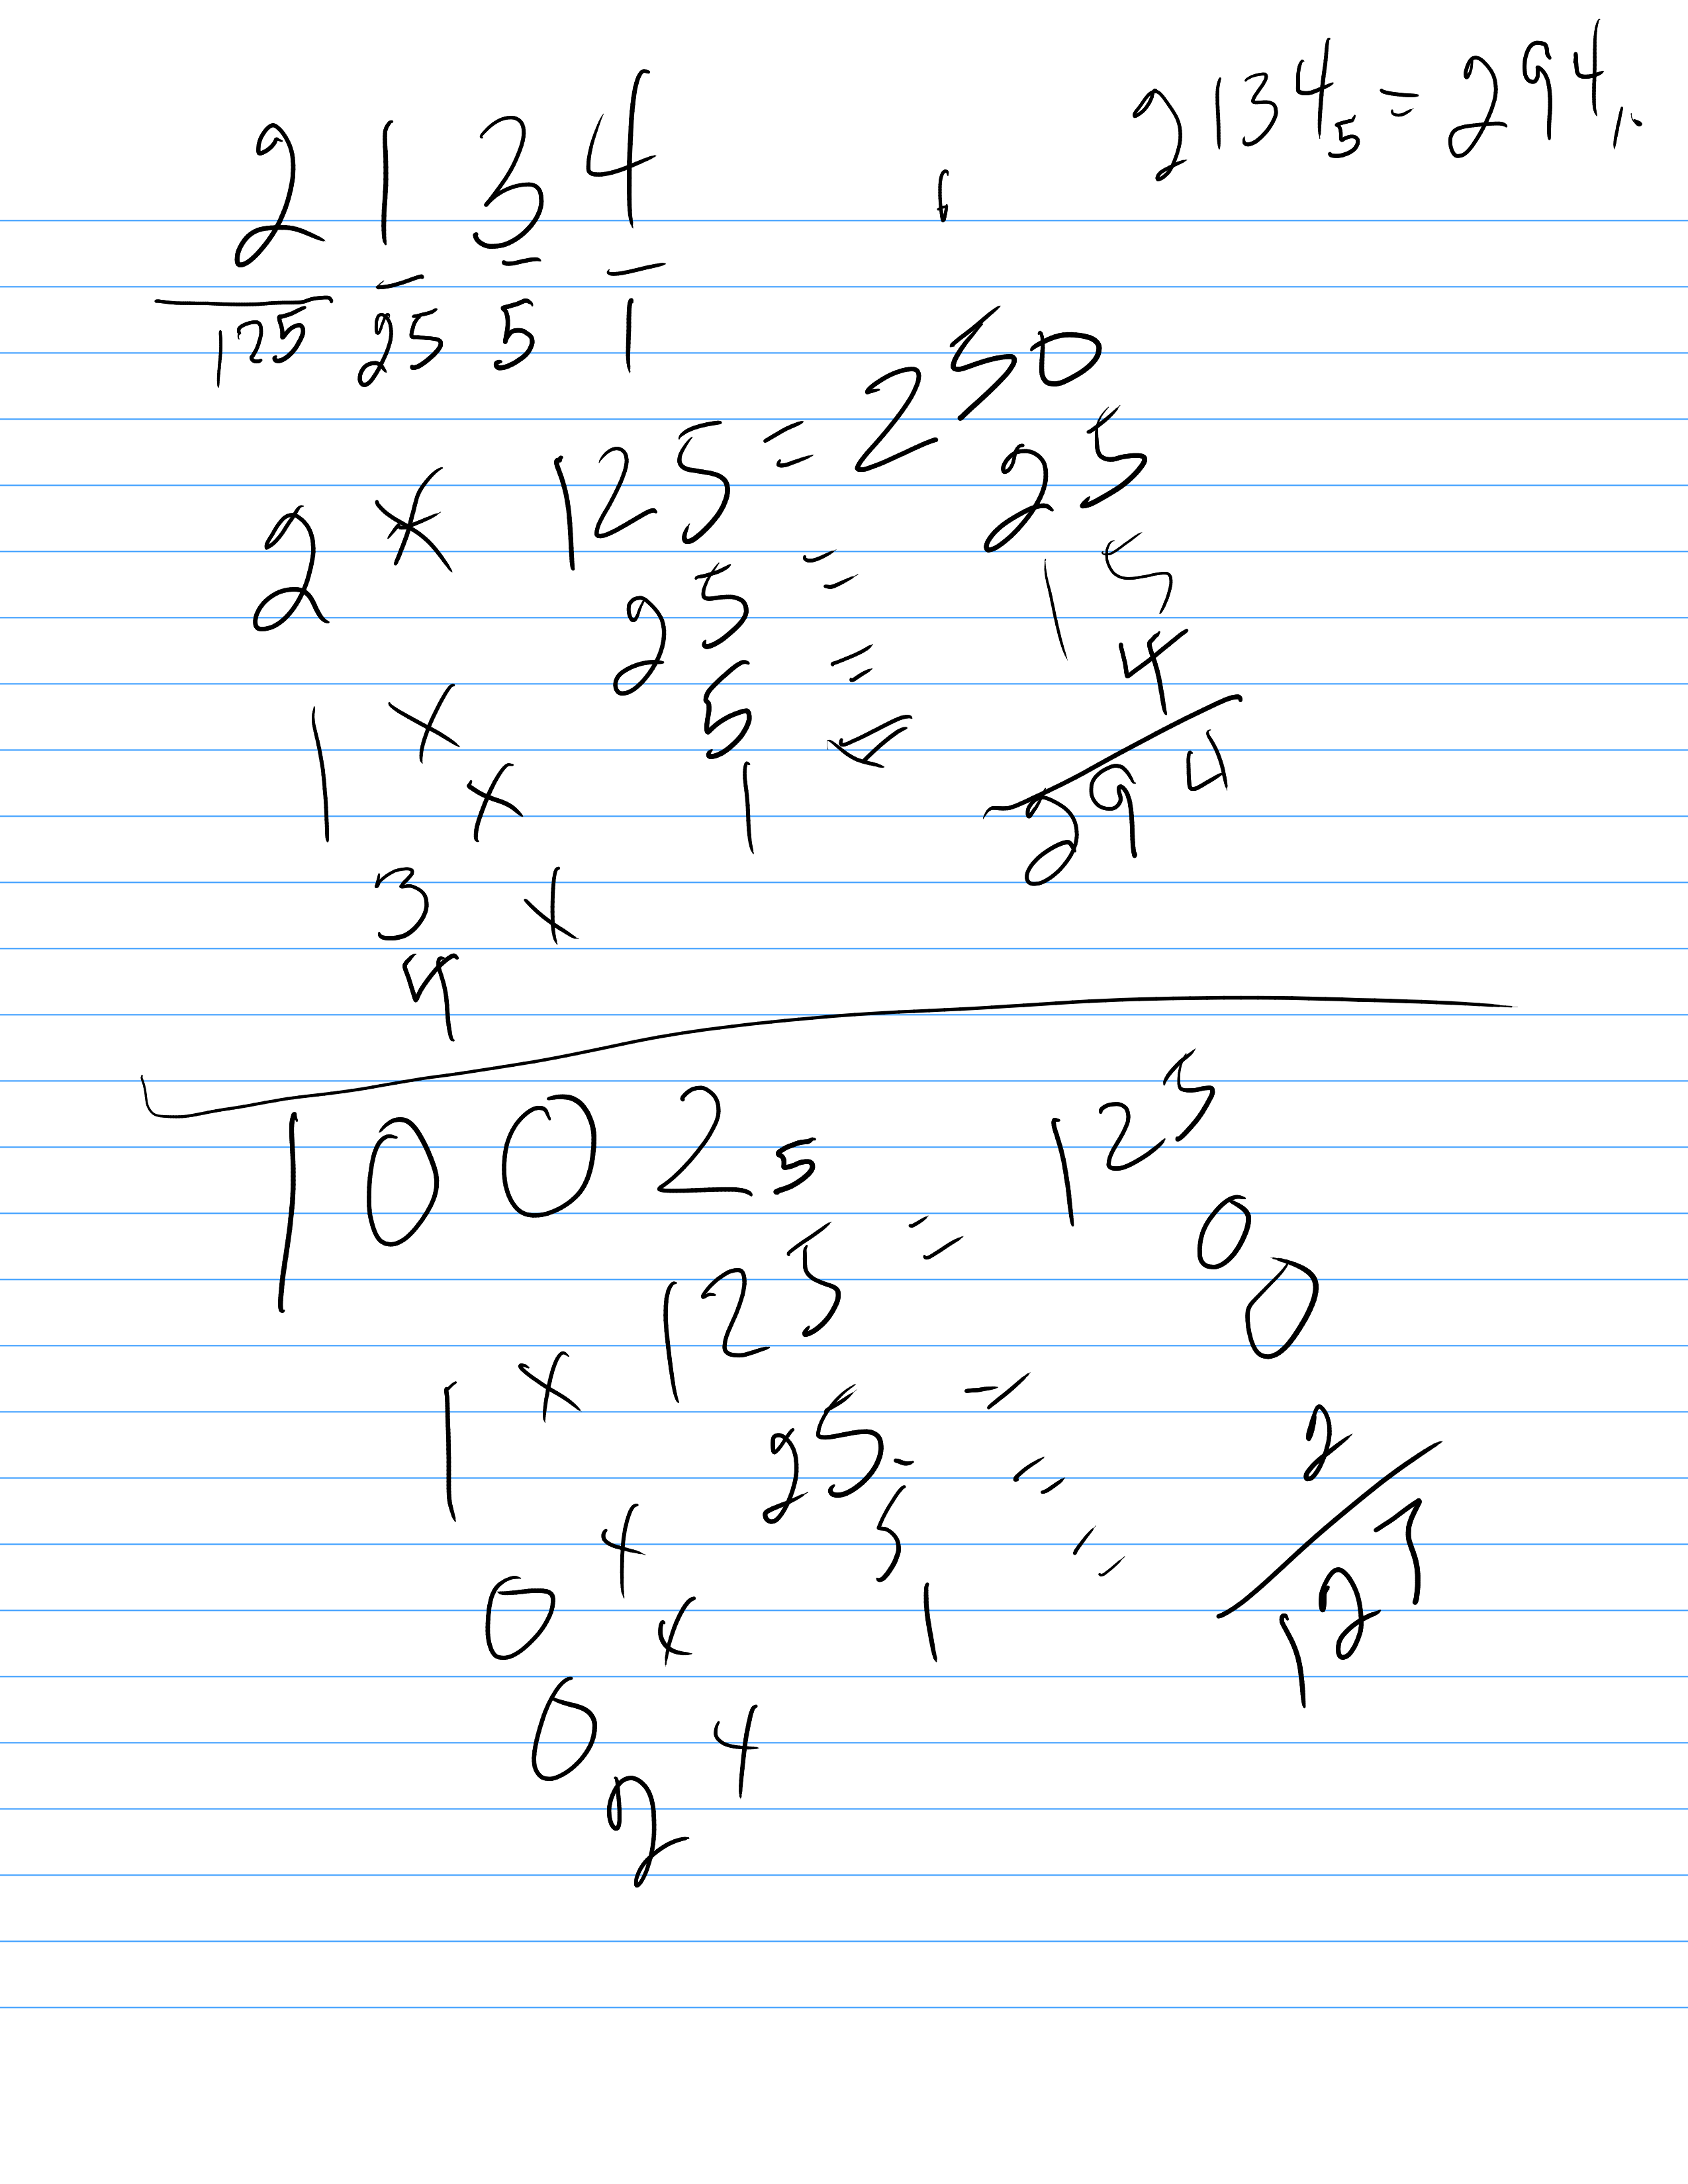 2134₅ = 294₁₀
2 1 3 4
125 25 5 1
2 × 125 = 250
1 × 25 = 25
3 × 5 = 15
4 × 1 = 4
294
1002₅
1 × 125 = 125
0 × 25 = 0
0 × 5 = 0
2 × 1 = 2
127